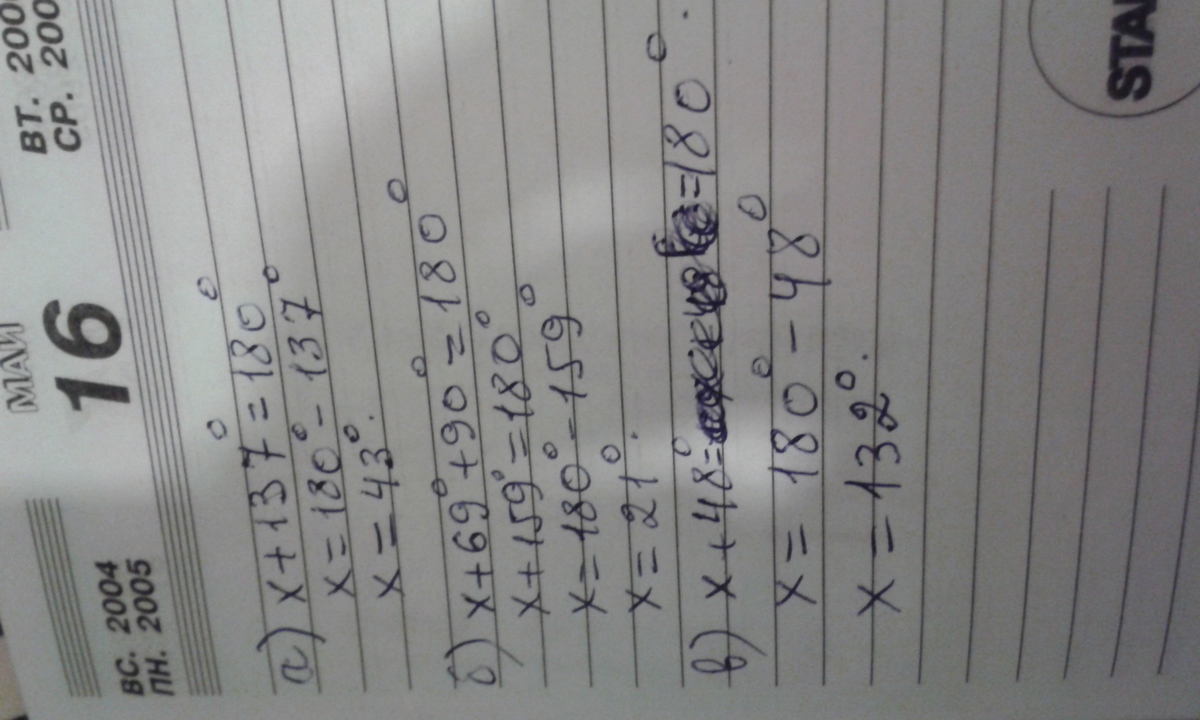 ВТ. 200
СР. 200
МАЙ
16
ВС. 2004
ПН. 2005
а) x + 137° = 180°
x = 180° - 137°
x = 43°.
б) x + 69° + 90° = 180°
x + 159° = 180°
x = 180° - 159°
x = 21°.
в) x + 48° = 180°.
x = 180° - 48°
x = 132°.
STA